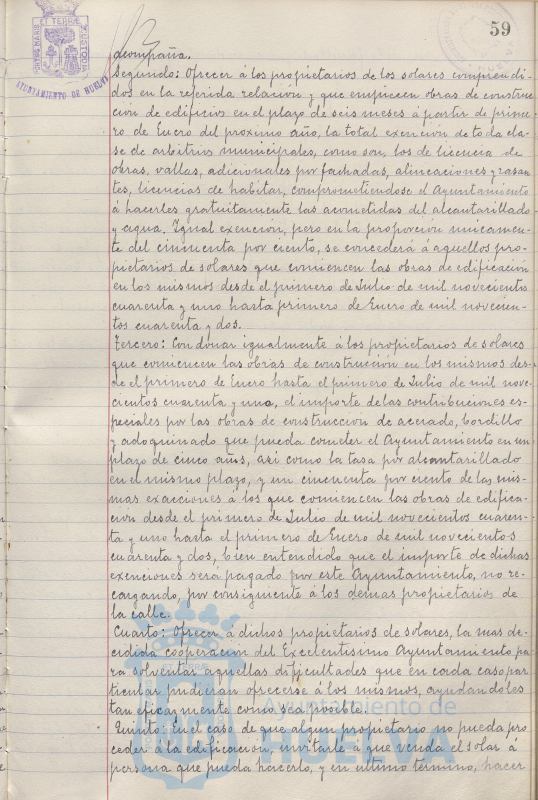 59
AYUNTAMIENTO DE HUELVA
acompaña.
Segundo: Ofrecer á los propietarios de los solares comprendi-
dos en la referida relación y que empiecen obras de construc-
ción de edificios en el plazo de seis meses á partir de prime-
ro de Enero del próximo año, la total exención de toda cla-
se de arbitrios municipales, como son, los de licencia de
obras, vallas, adicionales por fachadas, alineaciones y rasan-
tes, licencias de habitar, comprometiendose el Ayuntamiento
á hacerles gratuitamente las acometidas del alcantarillado
y agua. Igual exención, pero en la proporción unicamen-
te del cincuenta por ciento, se concederá á aquellos pro-
pietarios de solares que comiencen las obras de edificación
en los mismos desde el primero de Julio de mil novecientos
cuarenta y uno hasta primero de Enero de mil novecien-
tos cuarenta y dos.
Tercero: Condonar igualmente á los propietarios de solares
que comiencen las obras de construcción en los mismos des-
de el primero de Enero hasta el primero de Julio de mil nove-
cientos cuarenta y uno, el importe de las contribuciones es-
peciales por las obras de construccion de acerado, bordillo
y adoquinado que pueda cometer el Ayuntamiento en un
plazo de cinco años, así como la tasa por alcantarillado
en el mismo plazo, y un cincuenta por ciento de las mis-
mas exacciones á los que comiencen las obras de edifica-
ción desde el primero de Julio de mil novecientos cuaren-
ta y uno hasta el primero de Enero de mil novecientos
cuarenta y dos, bien entendido que el importe de dichas
exenciones será pagado por este Ayuntamiento, no re-
cargando, por consiguiente á los demas propietarios de
la calle.
Cuarto: Ofrecer á dichos propietarios de solares, la mas de-
cidida cooperación del Excelentísimo Ayuntamiento pa-
ra solventar aquellas dificultades que en cada caso par-
ticular pudieran ofrecerse á los mismos, ayudandoles
tan eficazmente como sea posible.
Quinto: En el caso de que algun propietario no pueda pro
ceder á la edificación, invitarle á que venda el solar á
persona que pueda hacerlo, y en ultimo término, hacer
Ayuntamiento de
HUELVA